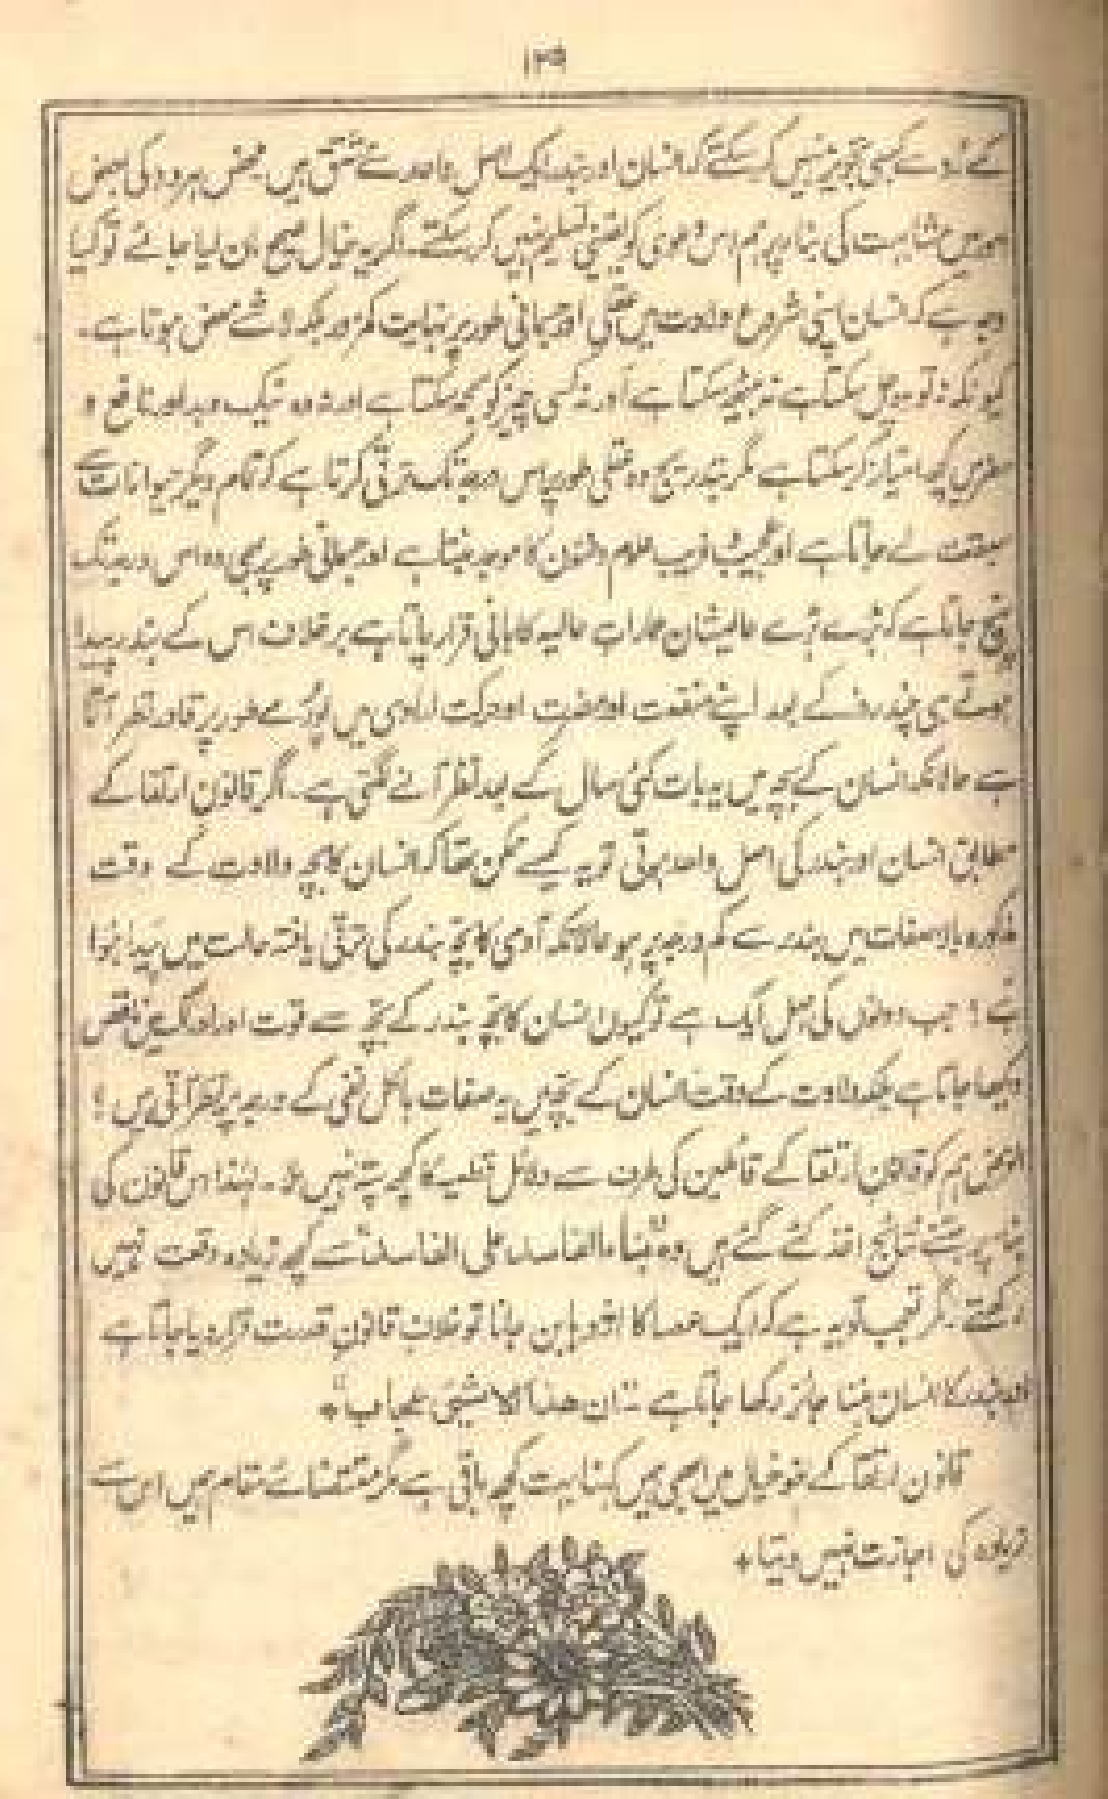 ۱۳۵
کے رُو سے کبھی تجویز نہیں کر سکتے کہ انسان اور بندر ایک اصل واحد سے مشتق ہیں۔ محض ہر دو کی بعض
امور میں مشابہت کی بنا پر ہم اس دعویٰ کو یقینی تسلیم نہیں کر سکتے۔ اگر یہ خیال صحیح مان لیا جائے تو کیا
وجہ ہے کہ انسان اپنی شروع ولادت میں عقلی اور جسمانی طور پر نہایت کمزور بلکہ لاشے محض ہوتا ہے۔
کیونکہ نہ تو وہ چل سکتا ہے نہ بیٹھ سکتا ہے اور نہ کسی چیز کو سمجھ سکتا ہے اور نہ وہ نیک و بد اور نافع و
مضر میں کچھ امتیاز کر سکتا ہے مگر بتدریج وہ عقلی طور پر اس درجہ تک ترقی کرتا ہے کہ تمام دیگر حیوانات سے
سبقت لے جاتا ہے اور عجیب و غریب علوم و فنون کا موجد بنتا ہے اور جسمانی طور پر بھی وہ اس درجہ تک
پہنچ جاتا ہے کہ بڑے سے بڑے عالیشان عمارات عالیہ کا بانی قرار پاتا ہے برخلاف اس کے بندر پیدا
ہوتے ہی چند روز کے بعد اپنے منفعت اور مضرت اور حرکت ارادی میں پورے طور پر قادر نظر آتا
ہے حالانکہ انسان کے بچہ میں یہ بات کئی سال کے بعد نظر آنے لگتی ہے۔ اگر قانون ارتقا کے
مطابق انسان اور بندر کی اصل واحد ہوتی تو یہ کیسے ممکن تھا کہ انسان کا بچہ ولادت کے وقت
مذکورہ بالا صفات میں بندر سے کم درجہ پر ہو حالانکہ آدمی کا بچہ بندر کی ترقی یافتہ حالت میں پیدا ہوا
ہے؟ جب دونوں کی اصل ایک ہے تو کیوں انسان کا بچہ بندر کے بچہ سے قوت اور ادراک میں ناقص
دیکھا جاتا ہے بلکہ ولادت کے وقت انسان کے بچہ میں یہ صفات بالکل نفی کے درجہ پر نظر آتی ہیں؟
الغرض ہم کو قانون ارتقا کے قائلین کی طرف سے دلائل قطعیہ کا کچھ پتہ نہیں۔ لہٰذا اس قانون کی
بنا پر جتنے نتائج اخذ کئے گئے ہیں وہ بناء الفاسد علی الفاسد سے کچھ زیادہ وقعت نہیں
رکھتے۔ مگر تعجب تو یہ ہے کہ ایک عصا کا اژدہا بن جانا تو خلاف قانون قدرت قرار دیا جاتا ہے
اور بندر کا انسان بننا جائز رکھا جاتا ہے۔ ان ھذا لا لشیئ عجاب*
قانون ارتقا کے خیال میں ابھی ہمیں کہنا بہت کچھ باقی ہے مگر مقتضائے مقام ہمیں اس سے
زیادہ کی اجازت نہیں دیتا*